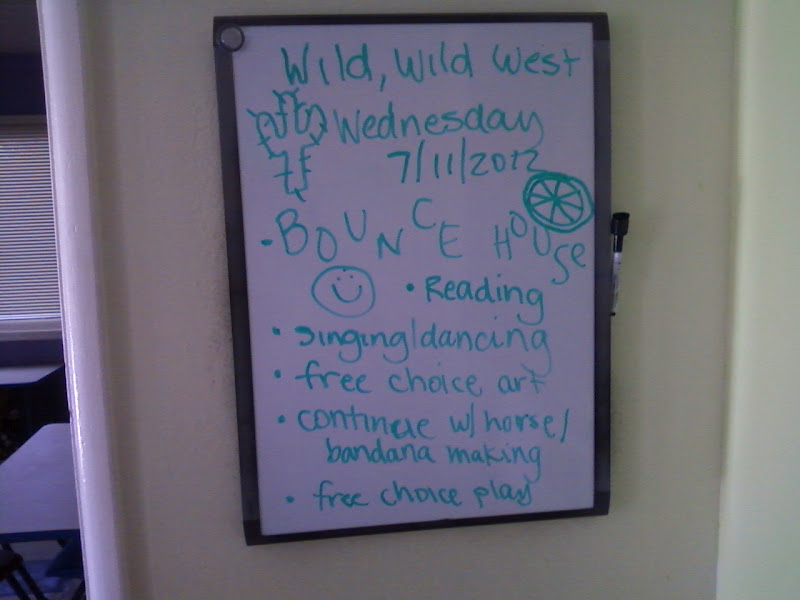 Wild, Wild West
Wednesday
7/11/2012
• BOUNCE HOUSe
• Reading
• singing/dancing
• free choice art
• continue w/horse/
bandana making
• free choice play